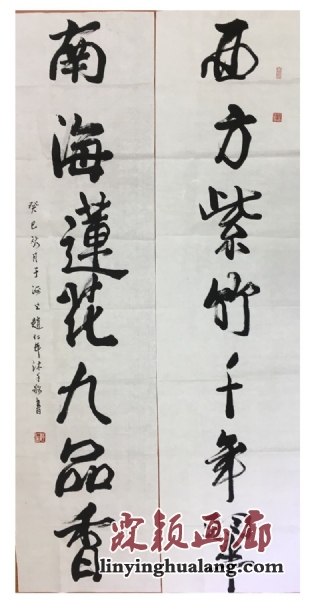 西方紫竹千年翠
南海蓮花九品香
癸巳 月于 趙 沐手敬書
霖颖画廊
linyinghualang.com